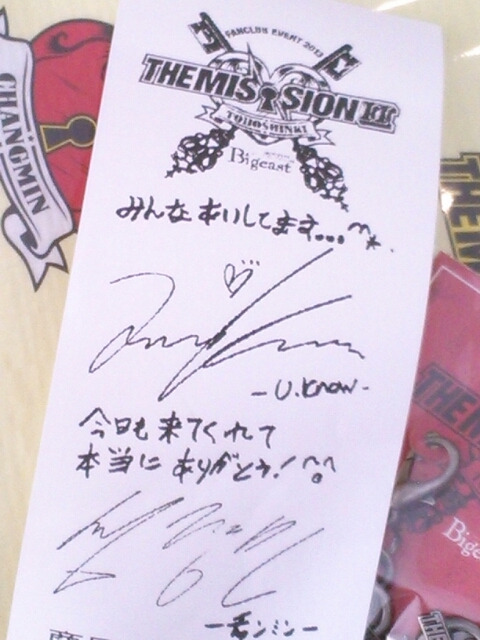 FANCLUB EVENT 2013
THE MISSION II
TOHOSHINKI
Bigeast
みんなあいしてます...^^*.
-U.know-
今日も来てくれて
本当にありがとう!^^
CHANGMIN
THE M
THE MI
Bige